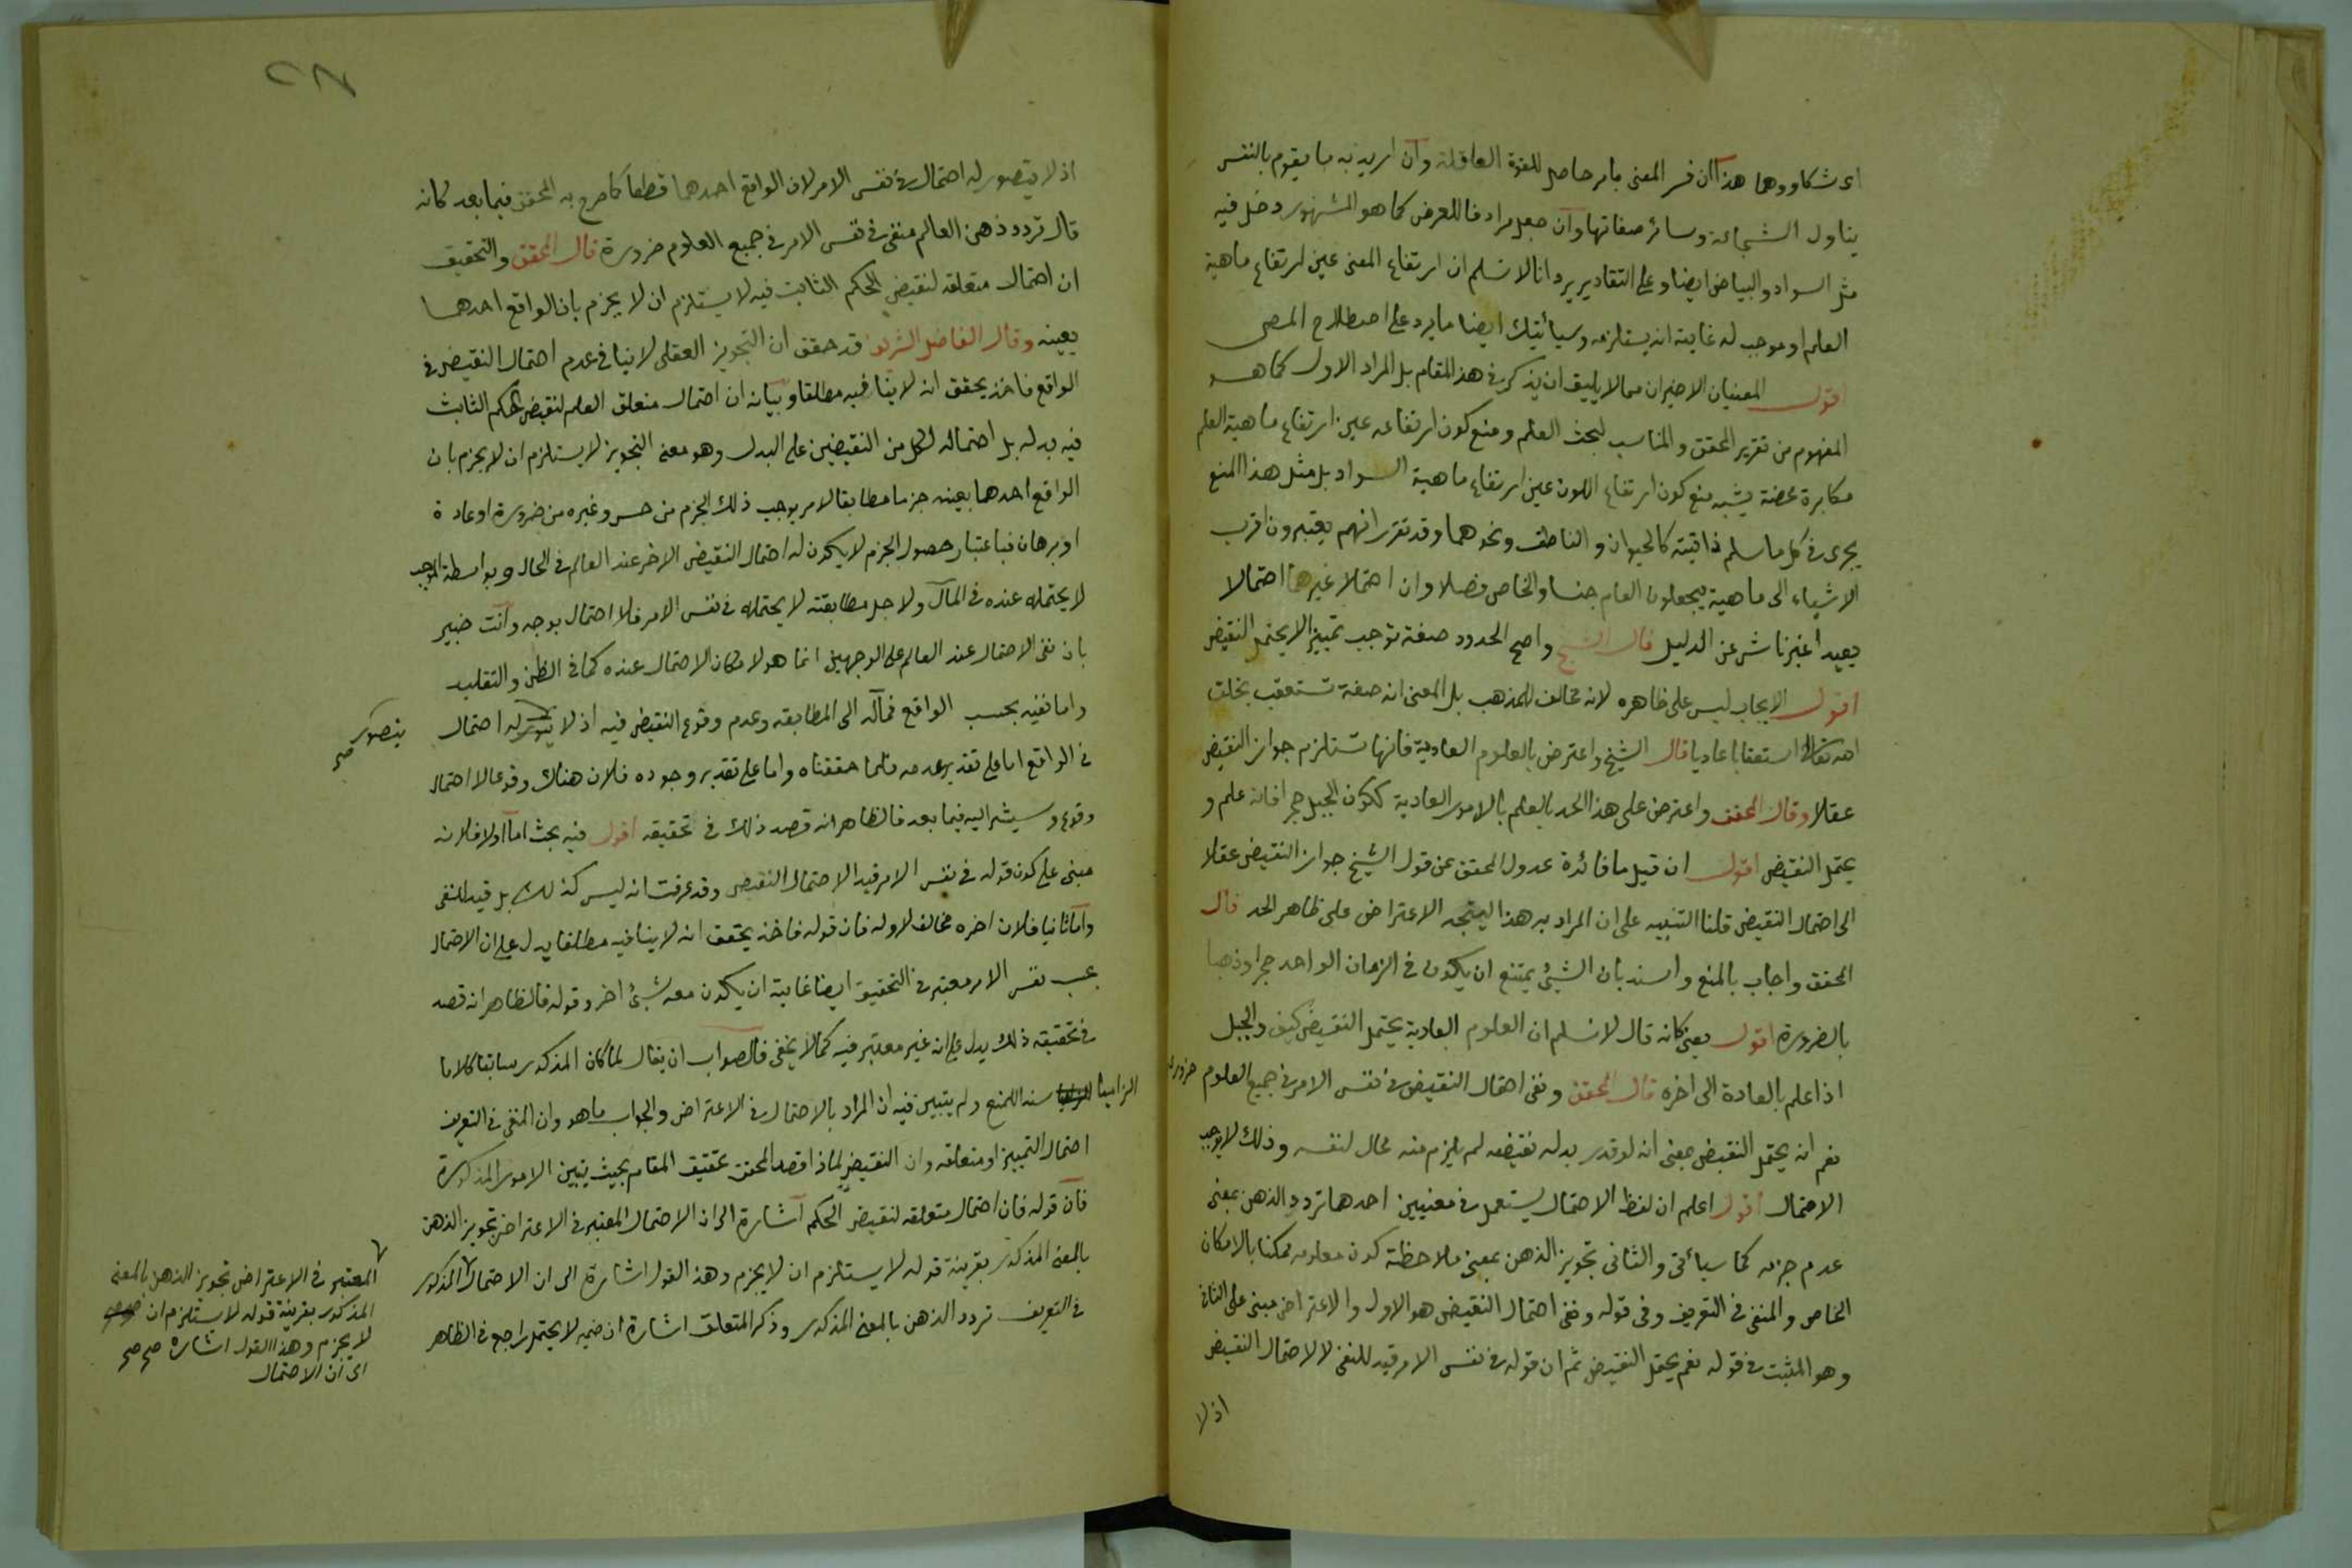 او شكا ووهما هذا ان فسر المعنى بامر حاصل للقوة العاقلة وان اريد به ما يقوم بالنفس
يتناول الشجاعة وسائر صفاتها وان جعل مرادفا للعرض كما هو المشهور دخل فيه
مثل السواد والبياض ايضا وعلى التقادير يرد انا لا نسلم ان ارتفاع المعنى عين ارتفاع ماهية
العلم او موجب له غايته انه يستلزمه وسيأتيك ايضا ما يرد على اصطلاح المص
اقول المعنيان الاخيران مما لا يليق ان يذكر في هذ المقام بل المراد الاول كما هو
المفهوم من تقرير المحقق والمناسب لبحث العلم ومنع كون ارتفاعه عين ارتفاع ماهية العلم
مكابرة محضة يشبه منع كون ارتفاع اللون عين ارتفاع ماهية السواد بل مثل هذا المنع
يجرى في كل ما سلم ذاتيته كالحيوان والناطق ونحوهما وقد تقرر انهم يعتبرون اقرب
الاشياء الى ماهية يجعلون العام جنسا والخاص فصلا وان احتملا غيرهما احتمالا
بعيدا غير ناش عن الدليل قال الشيخ واصح الحدود صفة توجب تمييزا لا يحتمل النقيض
اقول الايجاب ليس على ظاهره لانه مخالف للمذهب بل المعنى انه صفة تستعقب بخلق
الله تعالى استعقابا عاديا قال الشيخ واعترض بالعلوم العادية فانها تستلزم جواز النقيض
عقلا وقال المحقق واعترض على هذا الحد بالعلم بالامور العادية ككون الجبل حجرا فانه علم و
يحتمل النقيض اقول ان قيل ما فائدة عدول المحقق عن قول الشيخ جواز النقيض عقلا
الى احتمال النقيض قلنا التنبيه على ان المراد به هذا ليتجه الاعتراض على ظاهر الحد قال
المحقق واجاب بالمنع واسند بان الشئ يمتنع ان يكون في الزمان الواحد حجرا وذهبا
بالضرورة اقول يعنى كانه قال لا نسلم ان العلوم العادية يحتمل النقيض كيف والجبل
اذا علم بالعادة الى اخره قال المحقق ونفى احتمال النقيض في نفس الامر في جميع العلوم ضرورى
نعم انه يحتمل النقيض بمعنى انه لو قدر بدله نقيضه لم يلزم منه محال لنفسه وذلك لا يوجب
الاحتمال اقول اعلم ان لفظ الاحتمال يستعمل في معنيين احدهما تردد الذهن بمعنى
عدم جزمه كما سيأتى والثانى تجويز الذهن بمعنى ملاحظة كون معلومه ممكنا بالامكان
الخاص والمنفى في التعريف وفى قوله ونفى احتمال النقيض هو الاول والاعتراض مبنى على الثانى
وهو المثبت في قوله نعم يحتمل النقيض ثم ان قوله في نفس الامر قيد للنفى لا لاحتمال النقيض
اذ لا
اذ لا يتصور له احتمال في نفس الامر لان الواقع احدهما قطعا كما صرح به المحقق فيما بعد كانه
قال تردد ذهن العالم منفى في نفس الامر في جميع العلوم ضرورة قال المحقق والتحقيق
ان احتمال متعلقه لنقيض الحكم الثابت فيه لا يستلزم ان لا يجزم بان الواقع احدهما
بعينه وقال الفاضل الشريف قد حقق ان التجويز العقلى لا ينافى عدم احتمال النقيض في
الواقع فاخذ يحقق انه لا ينافيه مطلقا وبيانه ان احتمال متعلق العلم لنقيض الحكم الثابت
فيه بدله بل احتماله لكل من النقيضين على البدل وهو معنى التجويز لا يستلزم ان لا يجزم بان
الواقع احدهما بعينه جزما مطابقا لامر يوجب ذلك الجزم من حس وغيره من ضرورة او عادة
او برهان فباعتبار حصول الجزم لا يكون له احتمال النقيض الاخر عند العالم في الحال وبواسطة الموجب
لا يحتمله عنده في المآل ولاجل مطابقته لا يحتمله في نفس الامر فلا احتمال بوجه وانت خبير
بان نفى الاحتمال عند العالم على الوجهين انما هو لامكان الاحتمال عنده كما في الظن والتقليد
واما نفيه بحسب الواقع فمآله الى المطابقة وعدم وقوع النقيض فيه اذ لا له احتمال
يتصور صح
في الواقع اما على تقدير عدمه فلما حققناه واما على تقدير وجوده فلان هناك وقوعا لا احتمال
وقوع وسيشير اليه فيما بعد فالظاهر انه قصد ذلك في تحقيقه اقول فيه بحث اما اولا فلانه
مبنى على كون قوله في نفس الامر قيد الاحتمال النقيض وقد عرفت انه ليس كذلك بل قيد للنفى
واما ثانيا فلان اخره مخالف لاوله فان قوله فاخذ يحقق انه لا ينافيه مطلقا يدل على ان الاحتمال
بحسب نفس الامر معتبر في التحقيق ايضا غايته ان يكون معه شئ اخر وقوله فالظاهر انه قصد
في تحقيقه ذلك يدل على انه غير معتبر فيه كما لا يخفى فالصواب ان يقال لما كان المذكور سابقا كلاما
الزاميا سند اللمنع ولم يتبين فيه ان المراد بالاحتمال في الاعتراض والجواب ما هو وان المنفى في التعريف
احتمال التمييز او متعلقه وان النقيض لماذا قصد المحقق تحقيق المقام بحيث يتبين الامور المذكورة
فان قوله فان احتمال متعلقه لنقيض الحكم اشارة الى ان الاحتمال المعتبر في الاعتراض تجويز الذهن
بالمعنى المذكور بقرينة قوله لا يستلزم ان لا يجزم وهذ القول اشارة الى ان الاحتمال المذكور
في التعريف تردد الذهن بالمعنى المذكور وذكر المتعلق اشارة ان ضمير لا يحتمل راجع في الظاهر
المعتبر في الاعتراض تجويز الذهن بالمعنى
المذكور بقرينة قوله لا يستلزم ان
لا يجزم وهذا القول اشارة صح صح
الى ان الاحتمال